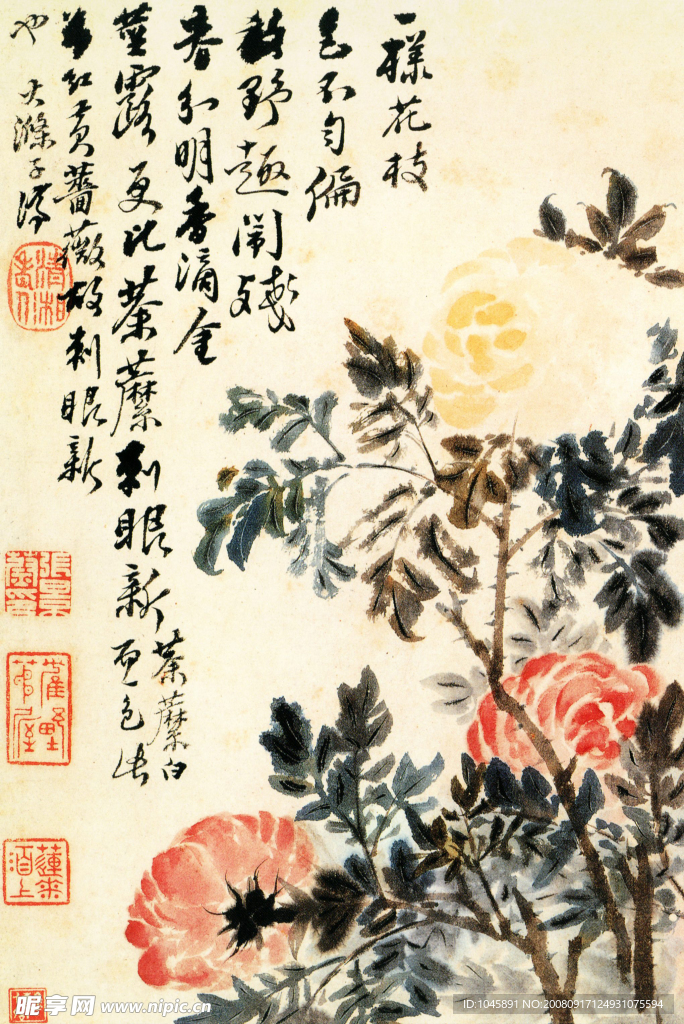 一样花枝
色不匀偏
致野趣闹残
春分明香滴金
茎露更比荼蘼刺眼新荼蘼白
而色法
兼红黄蔷薇故刺眼新
也 大滌子濟
清湘
蓮來
酒上
昵享网 www.nipic.cn
ID:1045891 NO:20080917124931075594